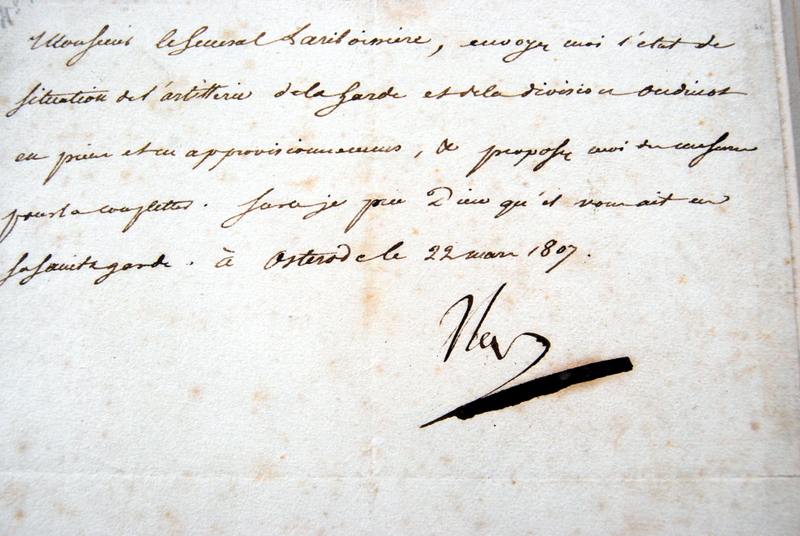 Monsieur le General Lariboissière, envoyez moi l'état de
situation de l'artillerie de la Garde et de la division oudinot
en pieces et en approvisionnemens, & proposez moi des mesures
pour la completter. Sur ce je prie Dieu qu'il vous ait en
sa sainte garde. à Osterode le 22 mars 1807.